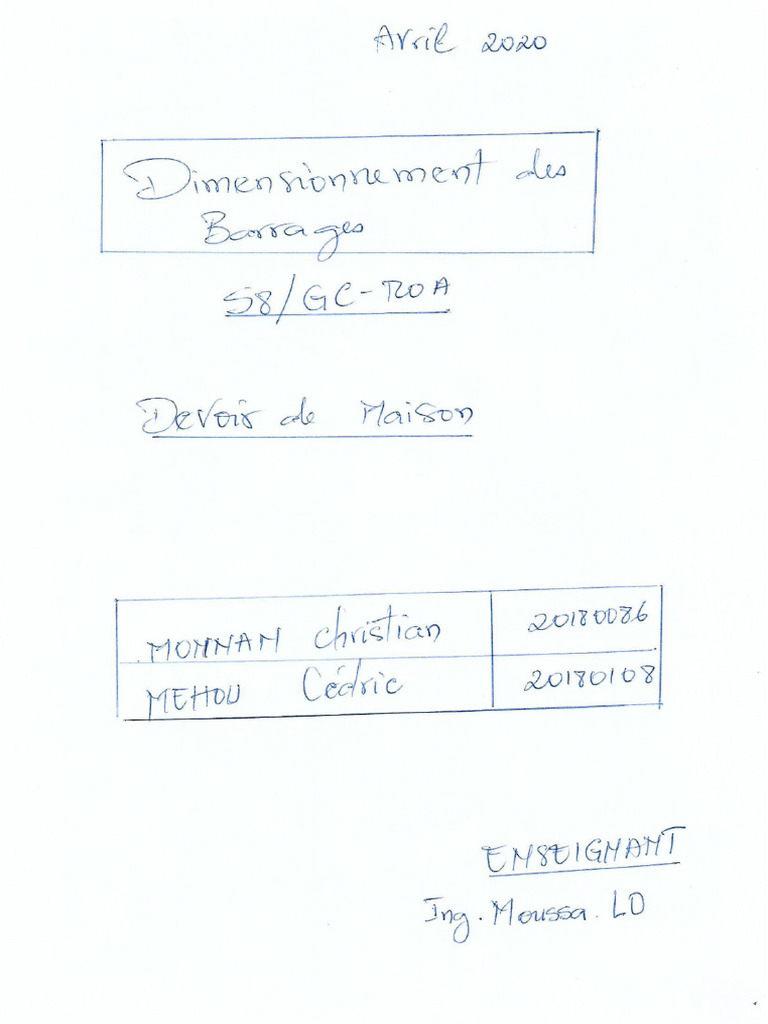 Avril 2020
Dimensionnement des
Barrages
S8/GC-TROA
Devoir de Maison
MONNAN Christian 20180086
MEHOU Cédric 20180108
ENSEIGNANT
Ing. Moussa. LO